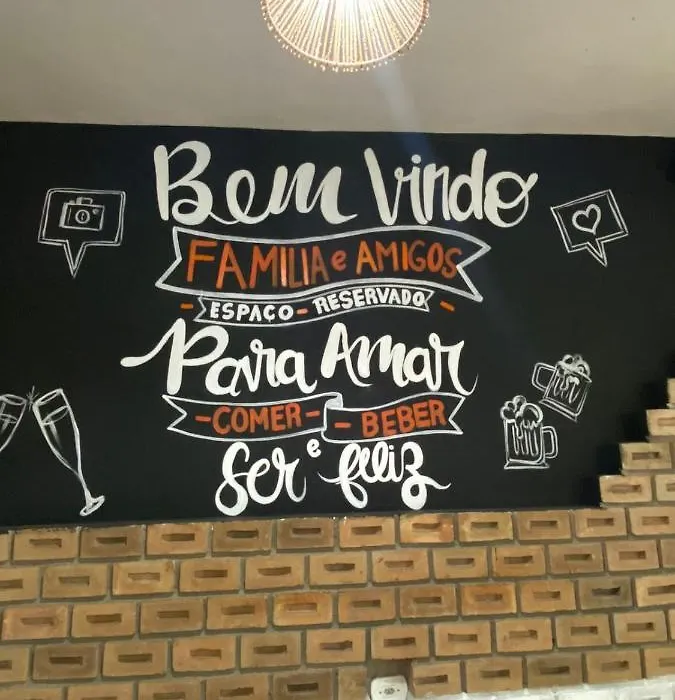 Bem Vindo
FAMILIA e AMIGOS
- ESPAÇO - RESERVADO -
Para Amar
- COMER - - BEBER
e
Ser feliz